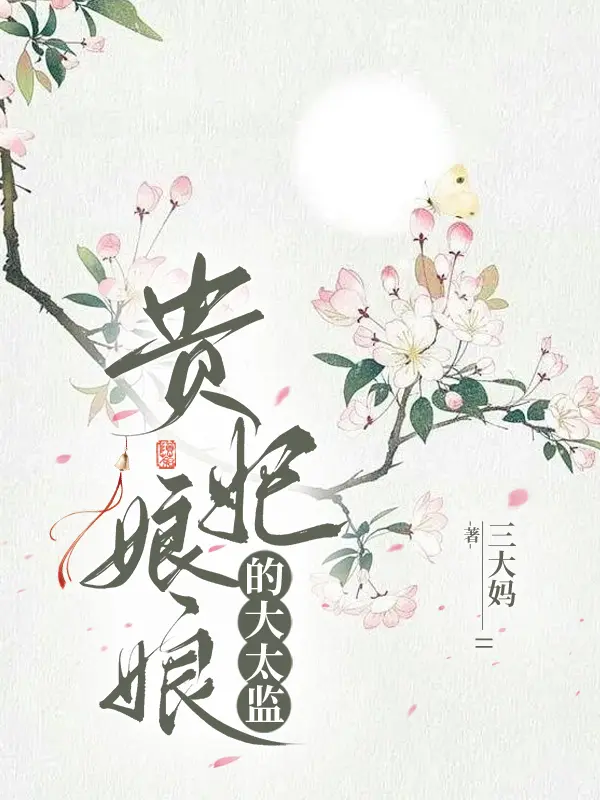 贵妃娘娘
的大太监
三大妈
著